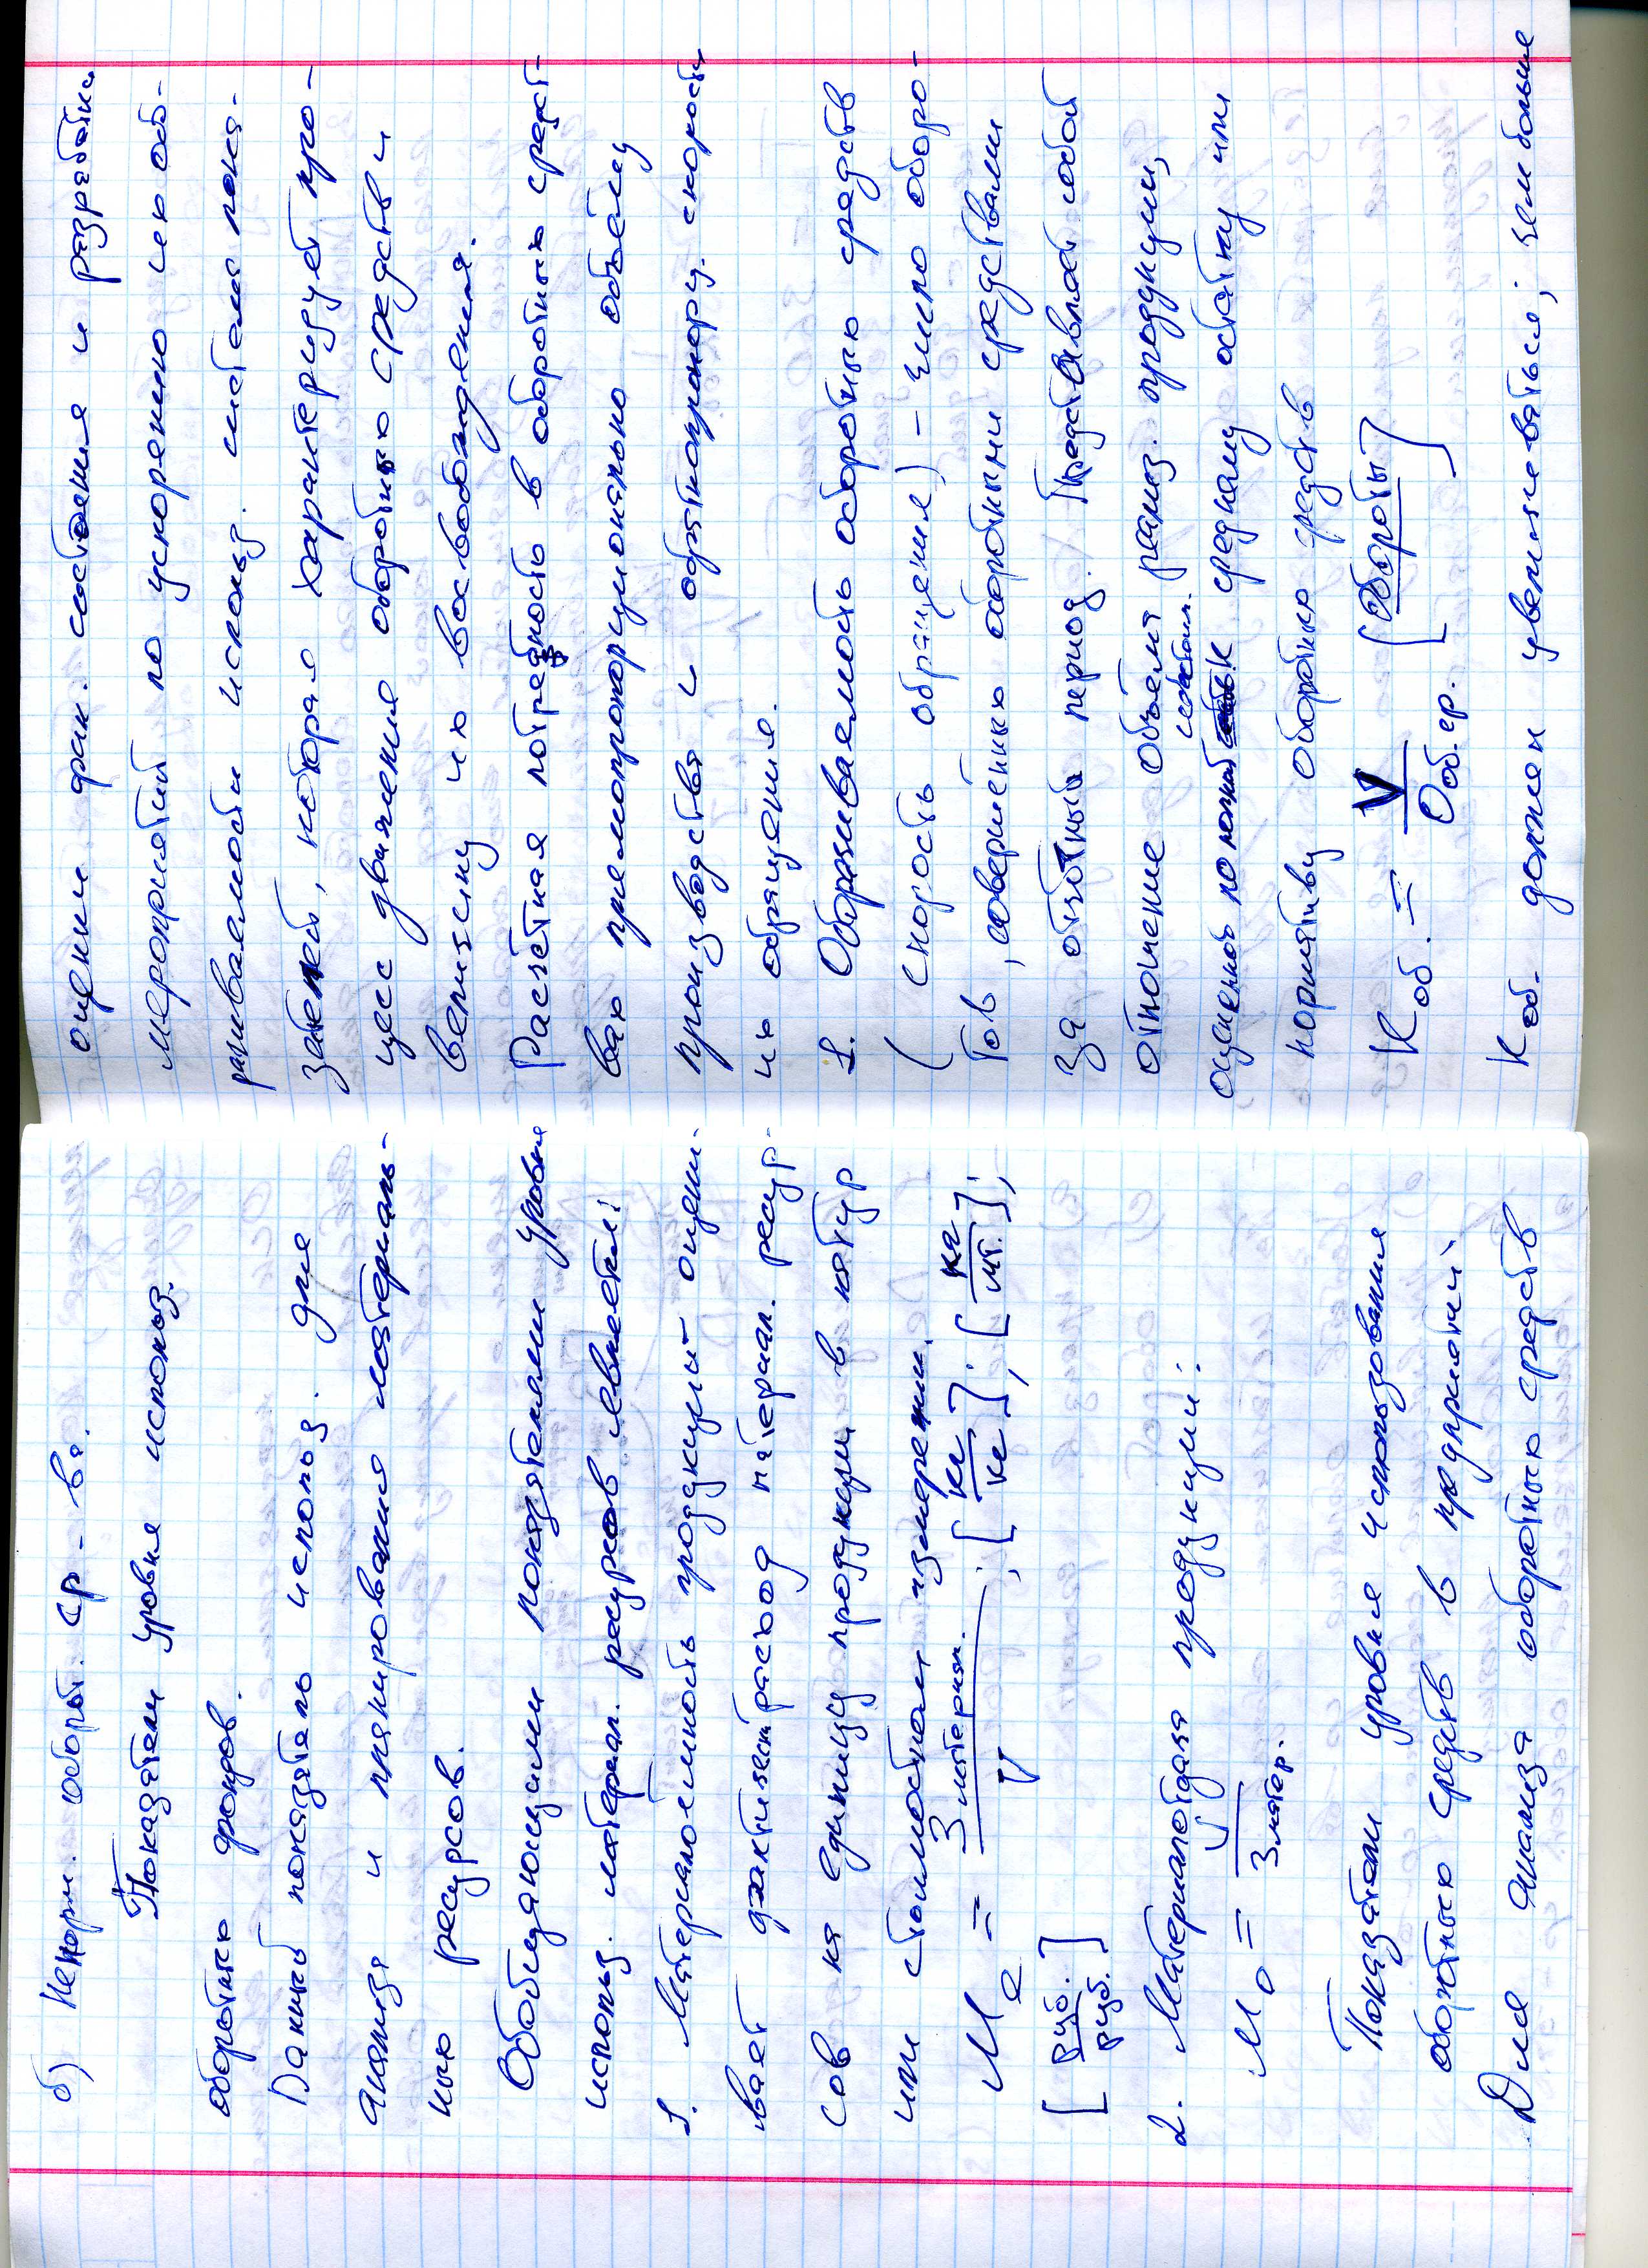 б) Ненорм. оборот. ср-ва.
Показатели уровня использ.
оборотных фондов.
Данный показатель использ. для
анализа и планирования материаль-
ных ресурсов.
Обобщающими показателями уровня
использ. матерал. ресурсов является:
1. Материалоемкость продукции – оцени-
вает фактическ расход материал. ресур-
сов на единицу продукции в натур
или стоимостном измерении.
Me = Зматериал. / V ; [кг/кг]; [кг/шт.];
[руб./руб.]
2. Материалоотдача продукции:
Mo = V / Зматер.
Показатели уровня использования
оборотных средств в предприятий.
Для анализа оборотных средств
оценки фак. состояния и разработка
мероприятий по ускорению их об-
рачиваемости использ. система пока-
зателей, которая характеризует про-
цесс движения оборотных средств и
величину их восвобождения.
Расчётная потребность в оборотных средст-
вах прямопропорционально объёму
производства и обратнопропорц. скорости
их обращения.
1. Оборачиваемость оборотных средств
(скорость обращения) – число оборо-
тов, совершенных оборотными средствами
за отчётный период. Представляет собой
отношение объёма реализ. продукции,
оценённой по к среднему остатку или
нормативу оборотных средств
Kоб. = V / Ооб.ср. [Обороты]
Kоб. должен увеличиваться; чем больше